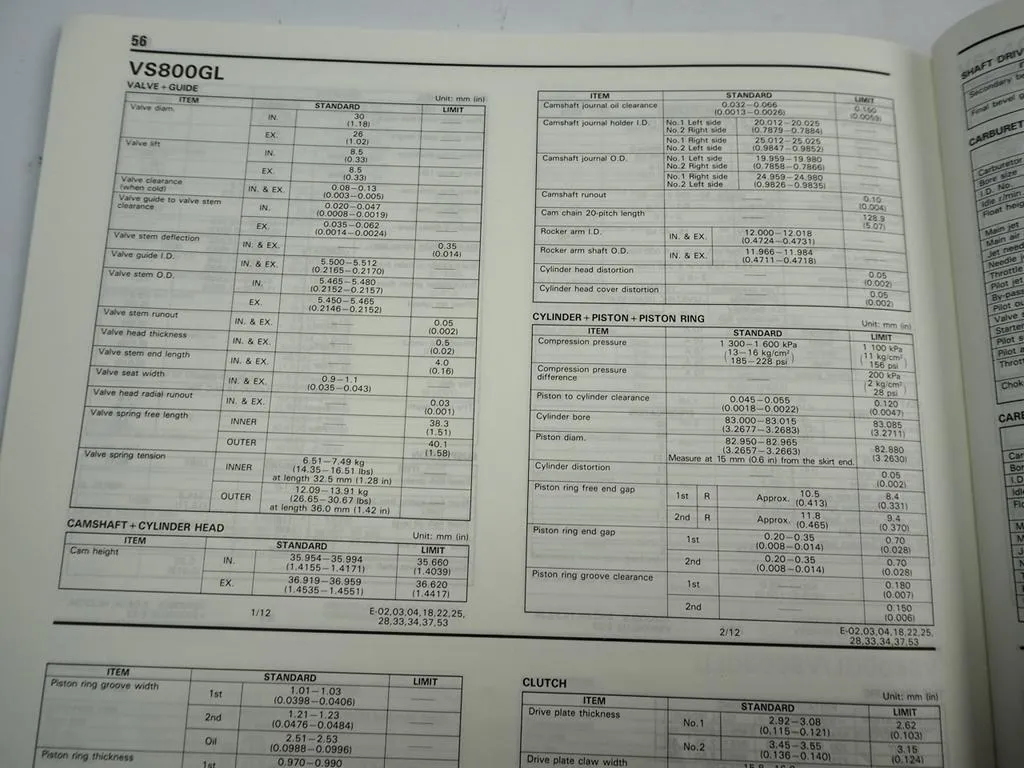 56
VS800GL
VALVE + GUIDE
Unit: mm (in)
ITEM STANDARD LIMIT
Valve diam. IN. 30 (1.18) ——
EX. 26 (1.02) ——
Valve lift IN. 8.5 (0.33) ——
EX. 8.5 (0.33) ——
Valve clearance (when cold) IN. & EX. 0.08–0.13 (0.003–0.005) ——
Valve guide to valve stem clearance IN. 0.020–0.047 (0.0008–0.0019) ——
EX. 0.035–0.062 (0.0014–0.0024) ——
Valve stem deflection IN. & EX. —— 0.35 (0.014)
Valve guide I.D. IN. & EX. 5.500–5.512 (0.2165–0.2170) ——
Valve stem O.D. IN. 5.465–5.480 (0.2152–0.2157) ——
EX. 5.450–5.465 (0.2146–0.2152) ——
Valve stem runout IN. & EX. —— 0.05 (0.002)
Valve head thickness IN. & EX. —— 0.5 (0.02)
Valve stem end length IN. & EX. —— 4.0 (0.16)
Valve seat width IN. & EX. 0.9–1.1 (0.035–0.043) ——
Valve head radial runout IN. & EX. —— 0.03 (0.001)
Valve spring free length INNER —— 38.3 (1.51)
OUTER —— 40.1 (1.58)
Valve spring tension INNER 6.51–7.49 kg (14.35–16.51 lbs) at length 32.5 mm (1.28 in) ——
OUTER 12.09–13.91 kg (26.65–30.67 lbs) at length 36.0 mm (1.42 in) ——
CAMSHAFT + CYLINDER HEAD
Unit: mm (in)
ITEM STANDARD LIMIT
Cam height IN. 35.954–35.994 (1.4155–1.4171) 35.660 (1.4039)
EX. 36.919–36.959 (1.4535–1.4551) 36.620 (1.4417)
1/12
E-02,03,04,18,22,25,
28,33,34,37,53
ITEM STANDARD LIMIT
Camshaft journal oil clearance 0.032–0.066 (0.0013–0.0026) 0.150 (0.0059)
Camshaft journal holder I.D. No.1 Left side No.2 Right side 20.012–20.025 (0.7879–0.7884) ——
No.1 Right side No.2 Left side 25.012–25.025 (0.9847–0.9852) ——
Camshaft journal O.D. No.1 Left side No.2 Right side 19.959–19.980 (0.7858–0.7866) ——
No.1 Right side No.2 Left side 24.959–24.980 (0.9826–0.9835) ——
Camshaft runout —— 0.10 (0.004)
Cam chain 20-pitch length —— 128.9 (5.07)
Rocker arm I.D. IN. & EX. 12.000–12.018 (0.4724–0.4731) ——
Rocker arm shaft O.D. IN. & EX. 11.966–11.984 (0.4711–0.4718) ——
Cylinder head distortion —— 0.05 (0.002)
Cylinder head cover distortion —— 0.05 (0.002)
CYLINDER + PISTON + PISTON RING
Unit: mm (in)
ITEM STANDARD LIMIT
Compression pressure 1 300–1 600 kPa (13–16 kg/cm² 185–228 psi) 1 100 kPa (11 kg/cm² 156 psi)
Compression pressure difference —— 200 kPa (2 kg/cm² 28 psi)
Piston to cylinder clearance 0.045–0.055 (0.0018–0.0022) 0.120 (0.0047)
Cylinder bore 83.000–83.015 (3.2677–3.2683) 83.085 (3.2711)
Piston diam. 82.950–82.965 (3.2657–3.2663) Measure at 15 mm (0.6 in) from the skirt end. 82.880 (3.2630)
Cylinder distortion —— 0.05 (0.002)
Piston ring free end gap 1st R Approx. 10.5 (0.413) 8.4 (0.331)
2nd R Approx. 11.8 (0.465) 9.4 (0.370)
Piston ring end gap 1st 0.20–0.35 (0.008–0.014) 0.70 (0.028)
2nd 0.20–0.35 (0.008–0.014) 0.70 (0.028)
Piston ring groove clearance 1st —— 0.180 (0.007)
2nd —— 0.150 (0.006)
2/12
E-02,03,04,18,22,25,
28,33,34,37,53
ITEM STANDARD LIMIT
Piston ring groove width 1st 1.01–1.03 (0.0398–0.0406) ——
2nd 1.21–1.23 (0.0476–0.0484) ——
Oil 2.51–2.53 (0.0988–0.0996) ——
Piston ring thickness 1st 0.970–0.990
CLUTCH
Unit: mm (in)
ITEM STANDARD LIMIT
Drive plate thickness No.1 2.92–3.08 (0.115–0.121) 2.62 (0.103)
No.2 3.45–3.55 (0.136–0.140) 3.15 (0.124)
Drive plate claw width
SHAFT DRIV
Secondary b
Final bevel g
CARBURET
Carburetor
Bore size
I.D. No.
Idle r/min.
Float heig
Main jet
Main air
Jet need
Needle j
Throttle
Pilot jet
By-pass
Pilot ou
Valve s
Starter
Pilot s
Pilot a
Thrott
Chok
CARB
Car
Bor
I.D
Idl
Flo